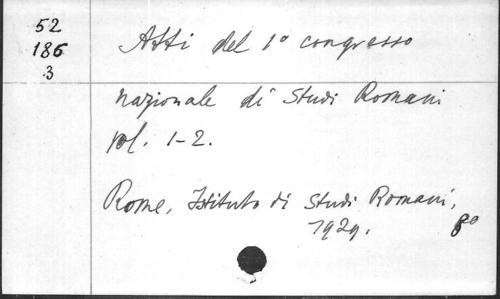 52
186
3
Atti del 1° congresso
nazionale di Studi Romani
vol. 1-2.
Rome, Istituto di Studi Romani,
1929. 8°